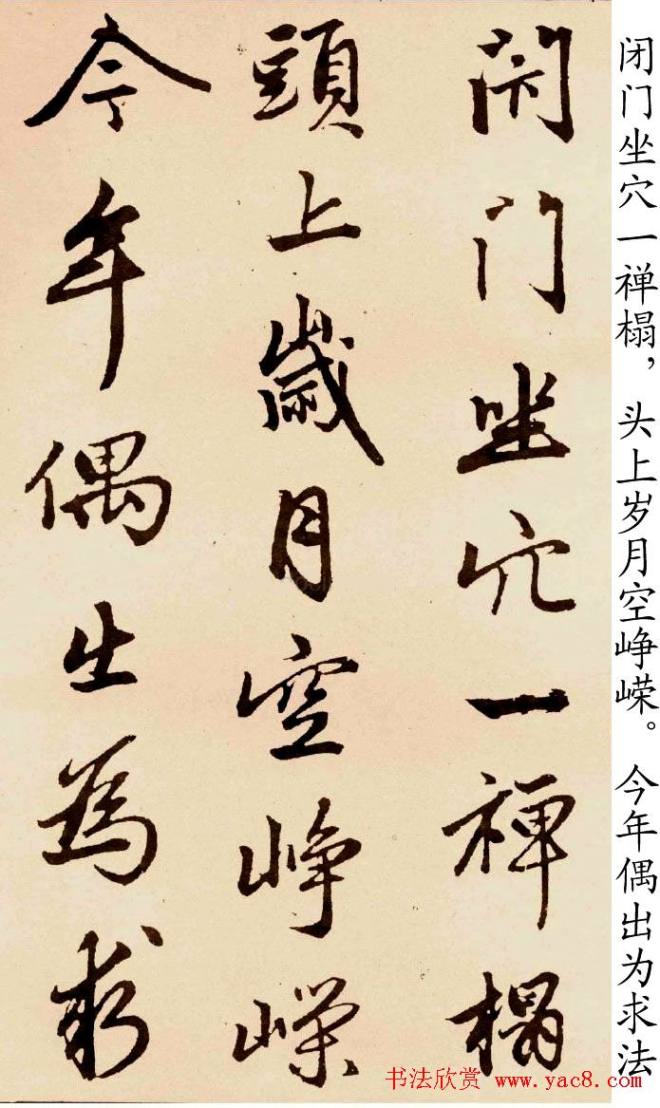 閉门坐穴一禅榻
頭上歲月空峥嵘
今年偶出為求
闭门坐穴一禅榻，头上岁月空峥嵘。今年偶出为求法
书法欣赏 www.yac8.com